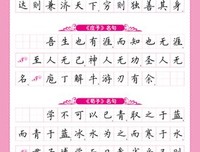 达则兼济天下穷则独善其身
《庄子》名句
吾生也有涯而知也无涯
至人无己神人无功圣人无
名 庖丁解牛游刃有余
《荀子》名句
学不可以已青取之于蓝
而青于蓝冰水为之而寒于水